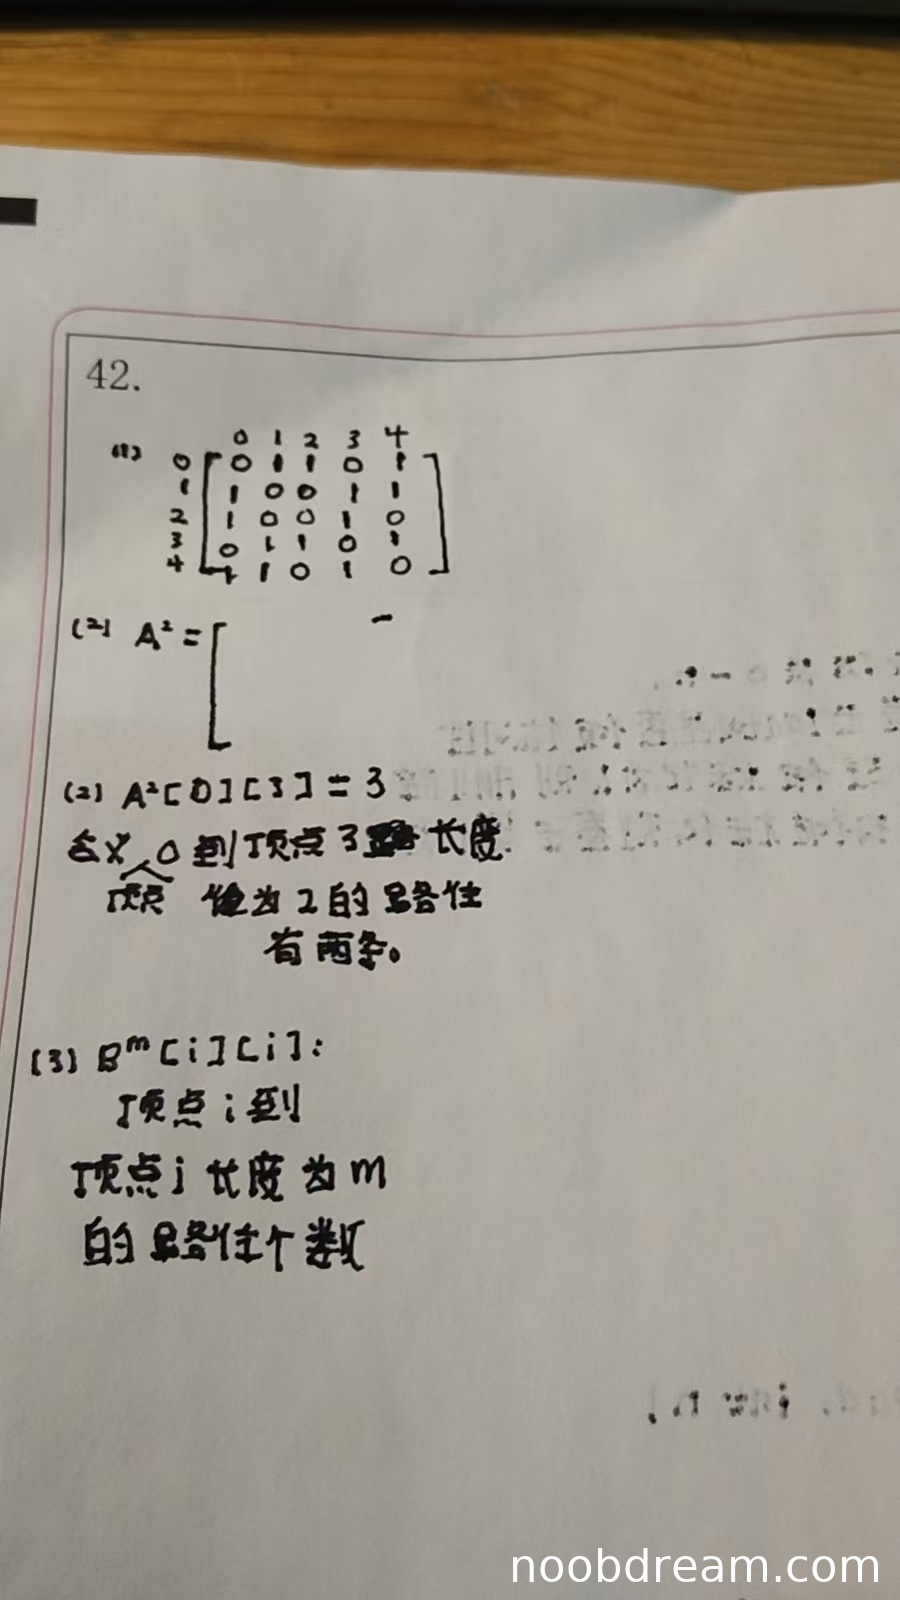 42.
(1)
0 1 2 3 4
0 0 1 1 0 1
1 1 0 0 1 1
2 1 0 0 1 0
3 0 1 1 0 1
4 1 1 0 1 0
(2) A² = [
(2) A²[0][3] = 3
含义 0 到顶点 3 长度
顶点 值为 2 的路径
有两条。
(3) Bᵐ[i][i]:
顶点 i 到
顶点 j 长度为 m
的路径个数
noobdream.com